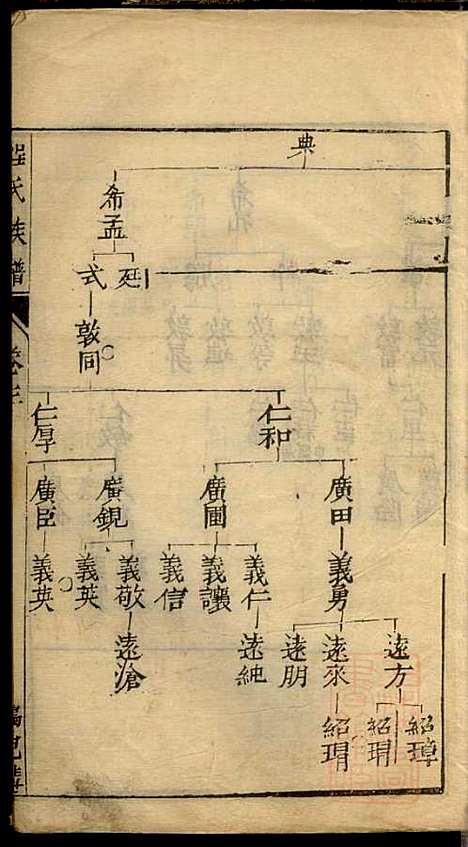 典
希孟
廷
式
敦同
仁和
仁厚
廣田
廣圃
廣鋧
廣臣
義勇
義仁
義讓
義信
義敬
義英
義英
遠方
遠來
遠朋
遠純
遠滄
紹璋
紹瑁
紹瑁
氏族譜